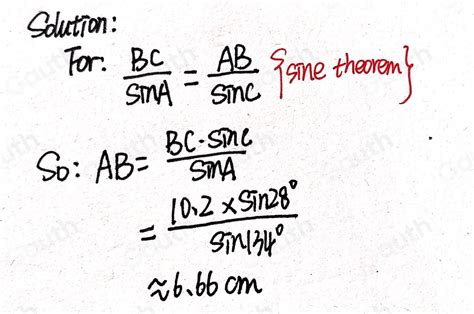 Solution:
For: BC/sinA = AB/sinC {sine theorem}
So: AB = BC·sinC/sinA
= 10.2 × sin28°/sin134°
≈ 6.66 cm